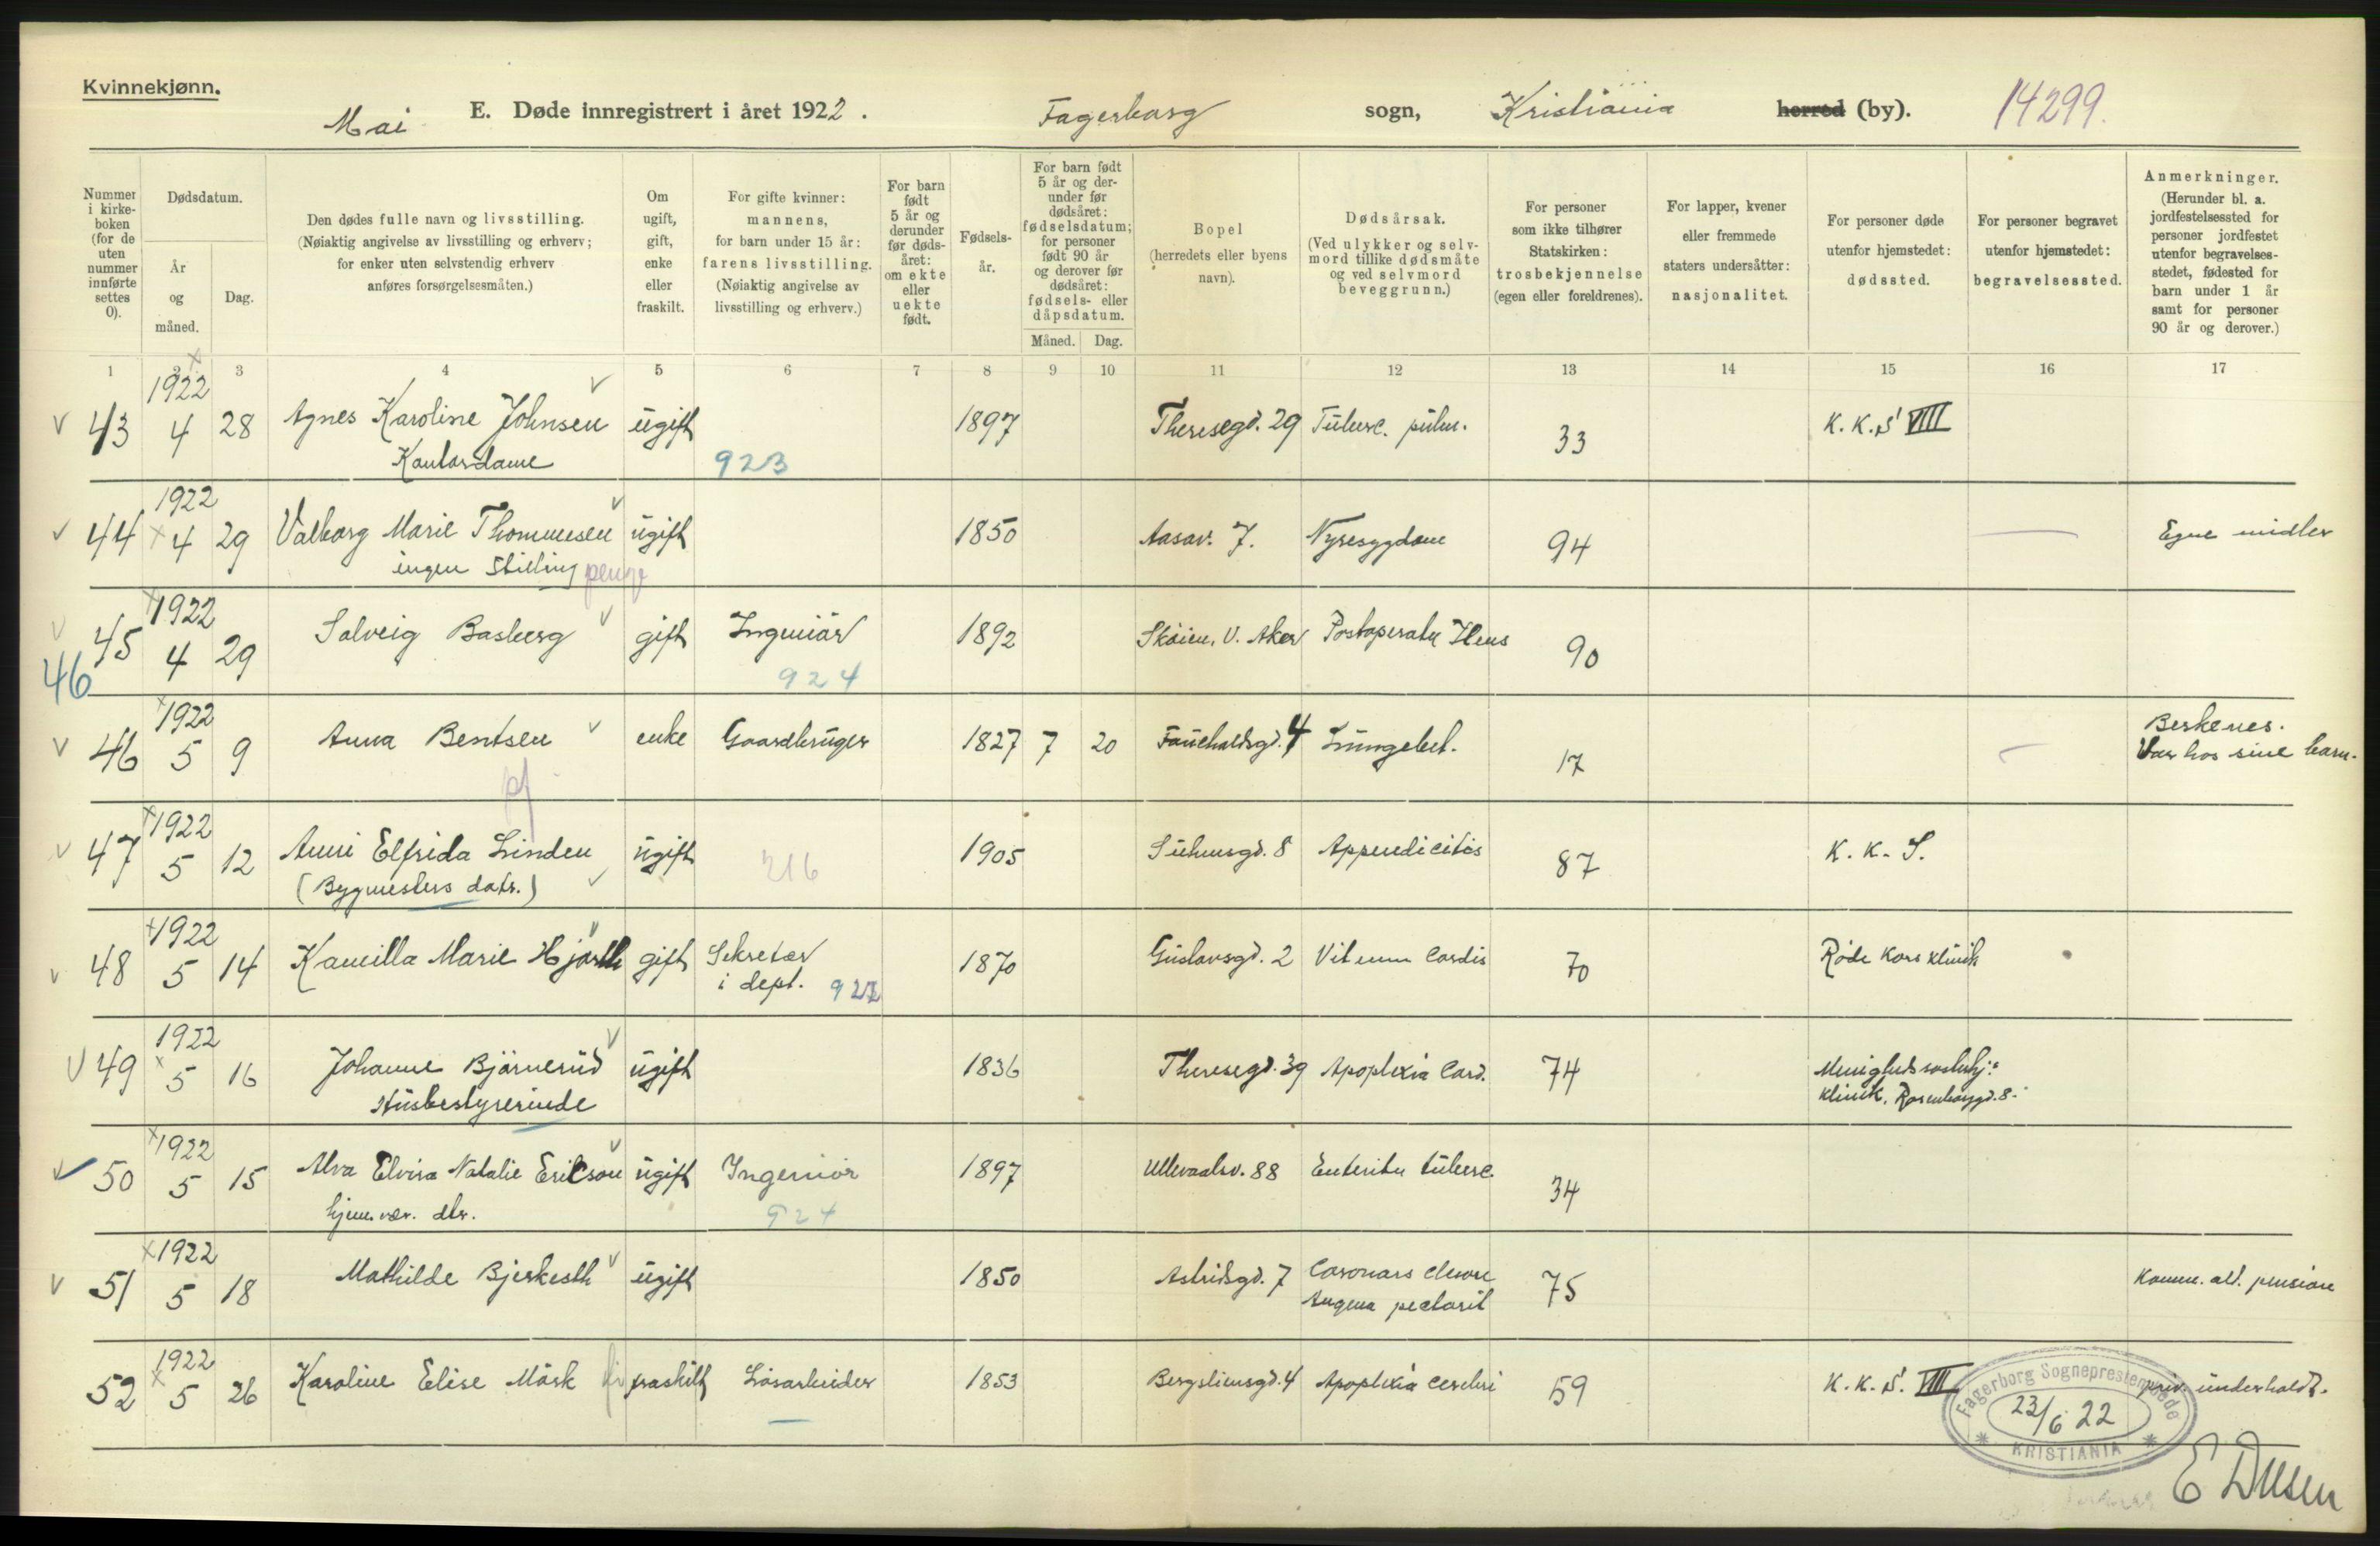 Kvinnekjønn.
Mai E. Døde innregistrert i året 1922. Fagerborg sogn, Kristiania herred (by). 14299.
Nummer i kirkeboken (for de uten nummer innførte settes 0).
Dødsdatum.
År og måned.
Dag.
Den dødes fulle navn og livsstilling.
(Nøiaktig angivelse av livsstilling og erhverv;
for enker uten selvstendig erhverv
anføres forsørgelsesmåten.)
Om ugift, gift, enke eller fraskilt.
For gifte kvinner:
mannens,
for barn under 15 år:
farens livsstilling.
(Nøiaktig angivelse av
livsstilling og erhverv.)
For barn født 5 år og derunder før dødsåret: om ekte eller uekte født.
Fødselsår.
For barn født 5 år og derunder før dødsåret: fødselsdatum; for personer født 90 år og derover før dødsåret: fødsels- eller dåpsdatum.
Måned. Dag.
Bopel
(herredets eller byens
navn).
Dødsårsak.
(Ved ulykker og selvmord tillike dødsmåte og ved selvmord beveggrunn.)
For personer
som ikke tilhører
Statskirken:
trosbekjennelse
(egen eller foreldrenes).
For lapper, kvener
eller fremmede
staters undersåtter:
nasjonalitet.
For personer døde
utenfor hjemstedet:
dødssted.
For personer begravet
utenfor hjemstedet:
begravelsessted.
Anmerkninger.
(Herunder bl. a.
jordfestelsessted for
personer jordfestet
utenfor begravelsesstedet, fødested for
barn under 1 år
samt for personer
90 år og derover.)
1 2 3 4 5 6 7 8 9 10 11 12 13 14 15 16 17
1922
43 4 28 Agnes Karoline Johnsen ugift 1897 Theresegd. 29 Tuberc. pulm. 33 K.K.S VIII
Kontordame 923
1922
44 4 29 Valborg Marie Thommesen ugift 1850 Aasav. 7. Nyresygdom 94 Egne midler
ingen Stilling
1922
45 4 29 Solveig Basberg gift Ingeniør 1892 Skøien, V. Aker Postoperativ Ileus 90
46 924
1922
46 5 9 Anna Bentsen enke Gaardbruger 1827 7 20 Fauchaldsgd. 4 Lungebet. 17 Beskenes.
Var hos sine barn.
1922
47 5 12 Anni Elfrida Linden ugift 216 1905 Suhmsgd. 8 Appendicitis 87 K.K.S.
(Bygmesters datr.)
1922
48 5 14 Kamilla Marie Hjorth gift Sekretær 1870 Gustavsgd. 2 Vitium Cordis 70 Røde Kors klinik
i dept.
1922
49 5 16 Johanne Bjørnerud ugift 1836 Theresegd. 39 Apoplexia Card. 74 Menighedssøsterhj:
Husbestyrerinde klinik, Rosenborggd. 8.
1922
50 5 15 Alva Elvira Natalie Ericson ugift Ingeniør 1897 Ullevaalsv. 88 Enteritis tuberc. 34
hjem.vær. dtr. 924
1922
51 5 18 Mathilde Bjerkeseth ugift 1850 Astridsgd. 7 75 Komm. ald. pension
Angina pectoris
1922
52 5 26 Karoline Elise Mörk fraskilt Løsarbeider 1853 Bergsliensgd. 4 Apoplexia Cerebri 59 K.K.S. VIII priv. underholdt.
Fagerborg Sogneprestembede
23/6 22
KRISTIANIA